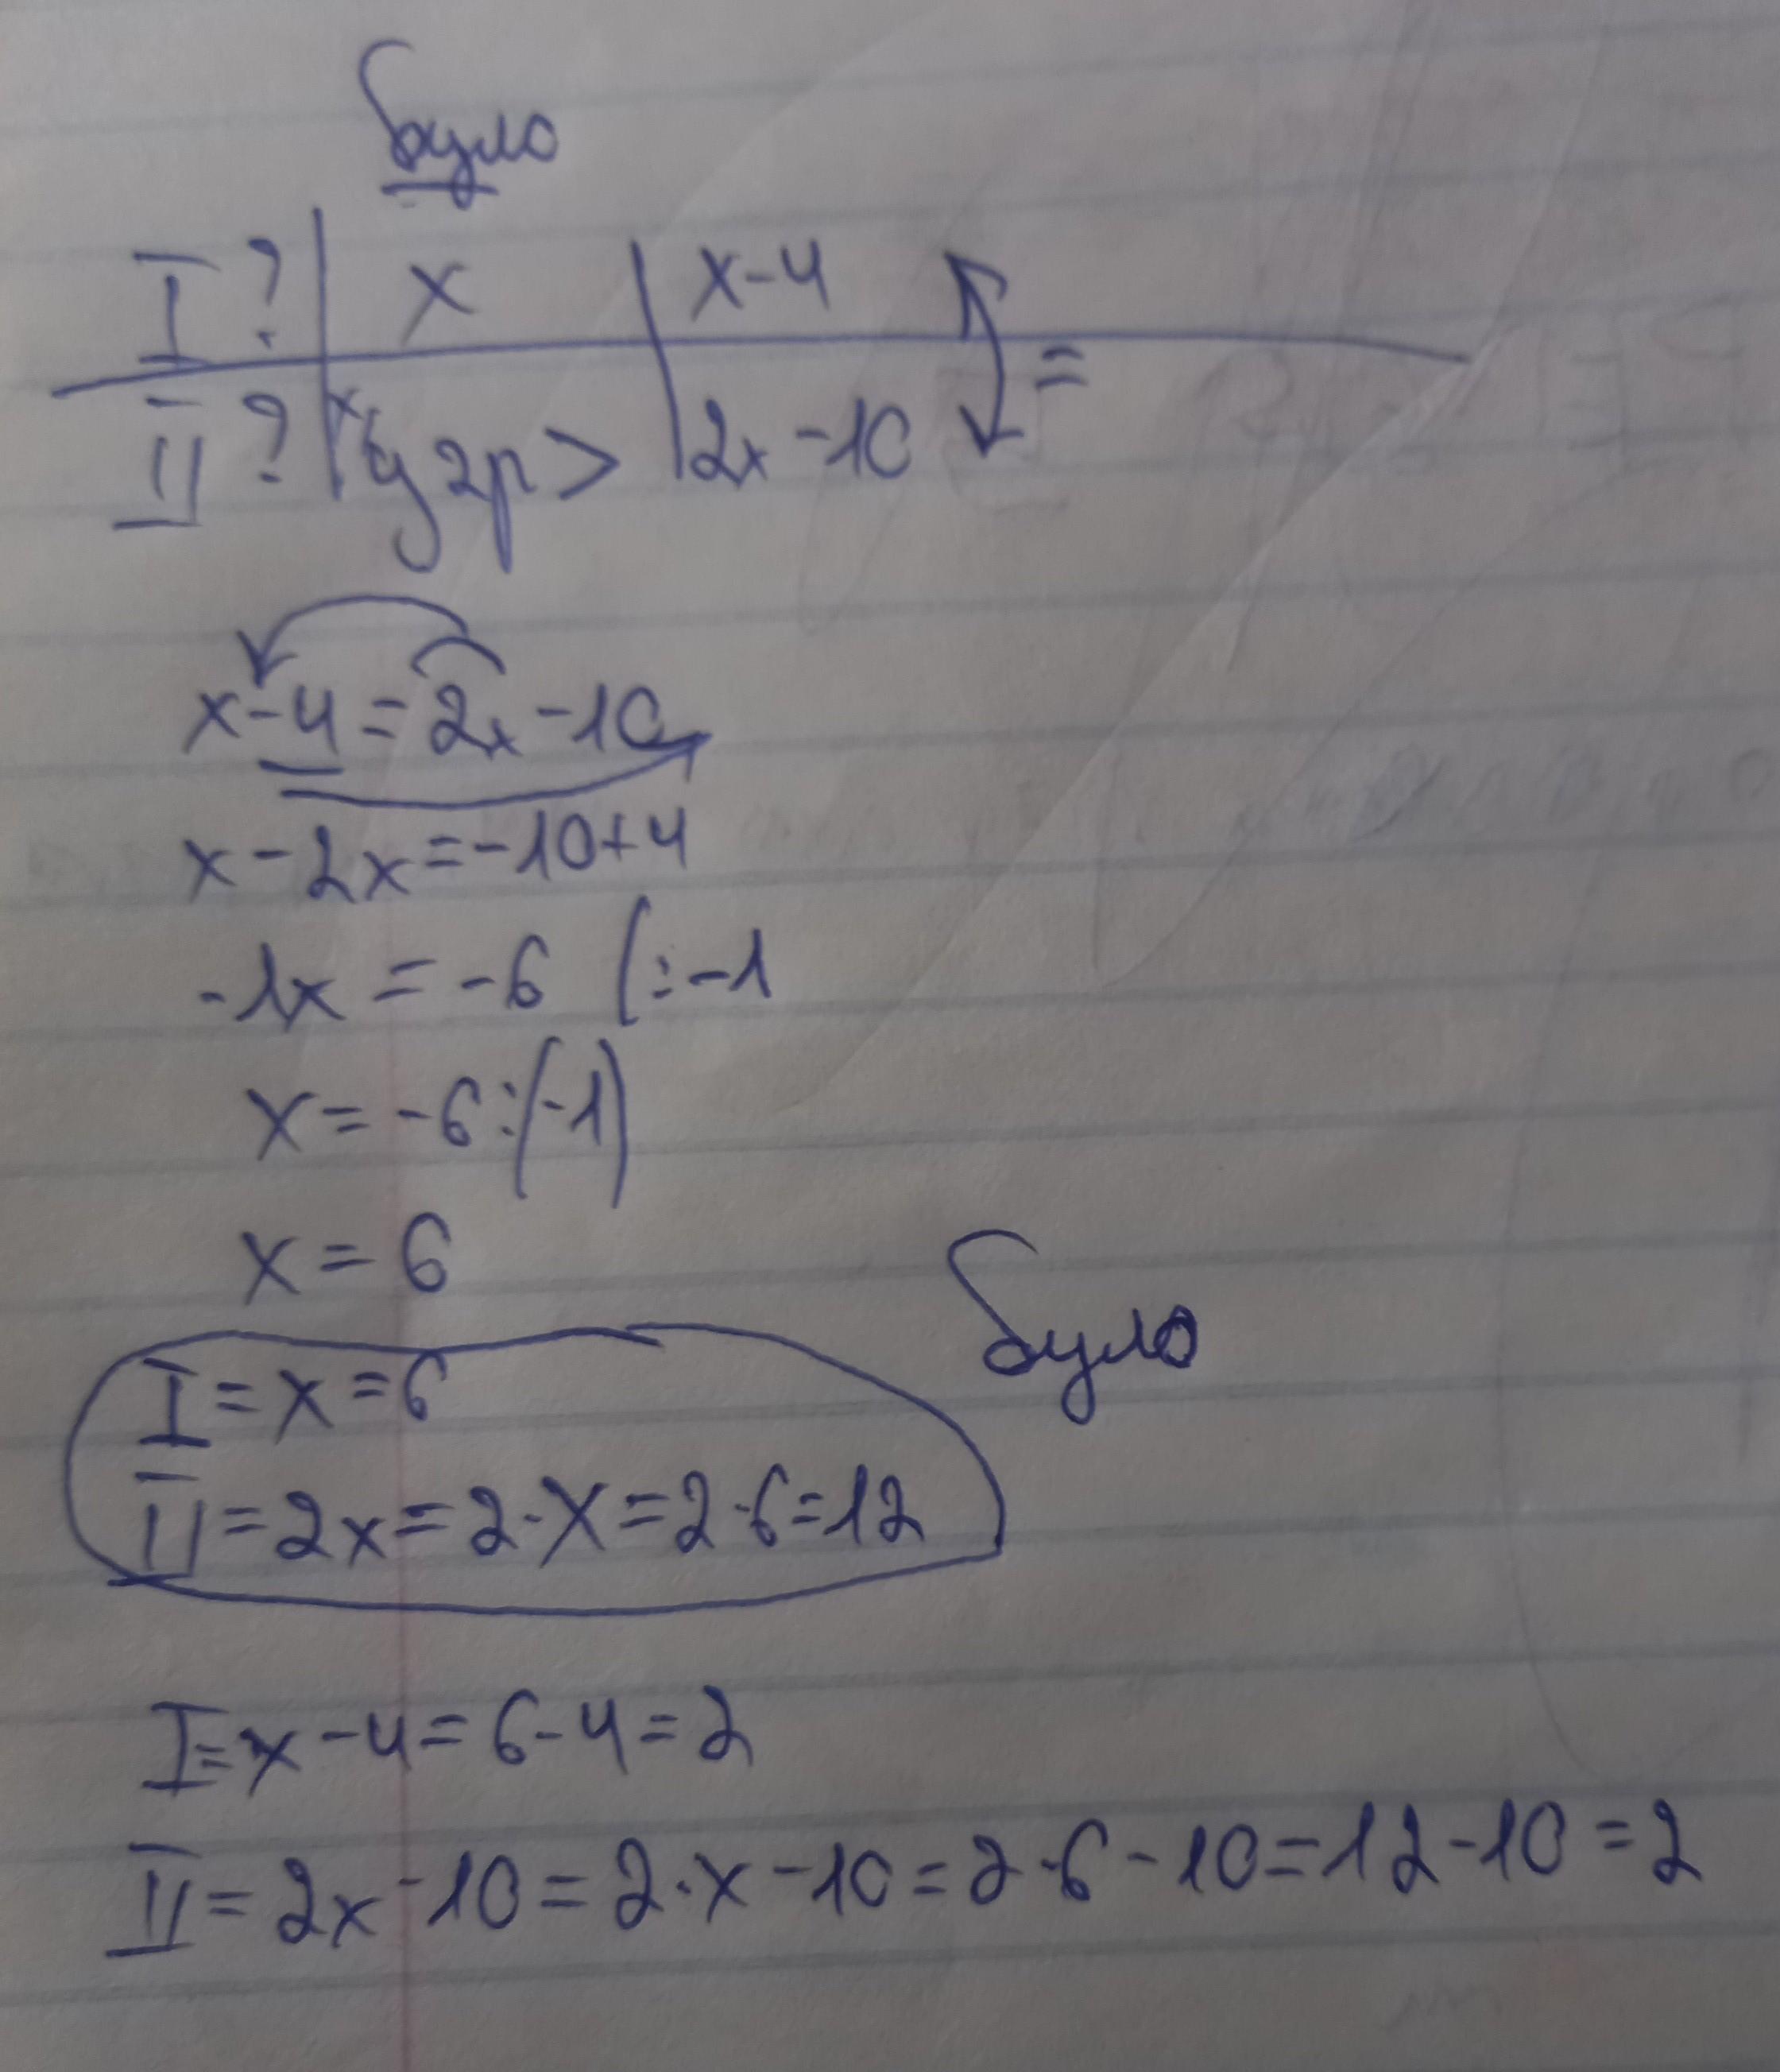 було
I ? x x-4
=
II ? x у 2р > 2x -10
x-4=2x-10
x-2x=-10+4
-1x = -6 (:-1
x = -6:(-1)
x = 6
було
I = x = 6
II = 2x = 2·x = 2·6=12
I = x-4 = 6-4 = 2
II = 2x-10 = 2·x-10 = 2·6-10 = 12-10 = 2